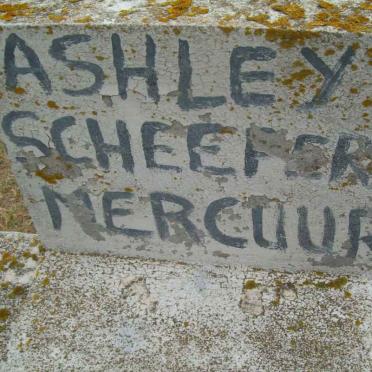 ASHLEY
SCHEEPER
MERCUUR